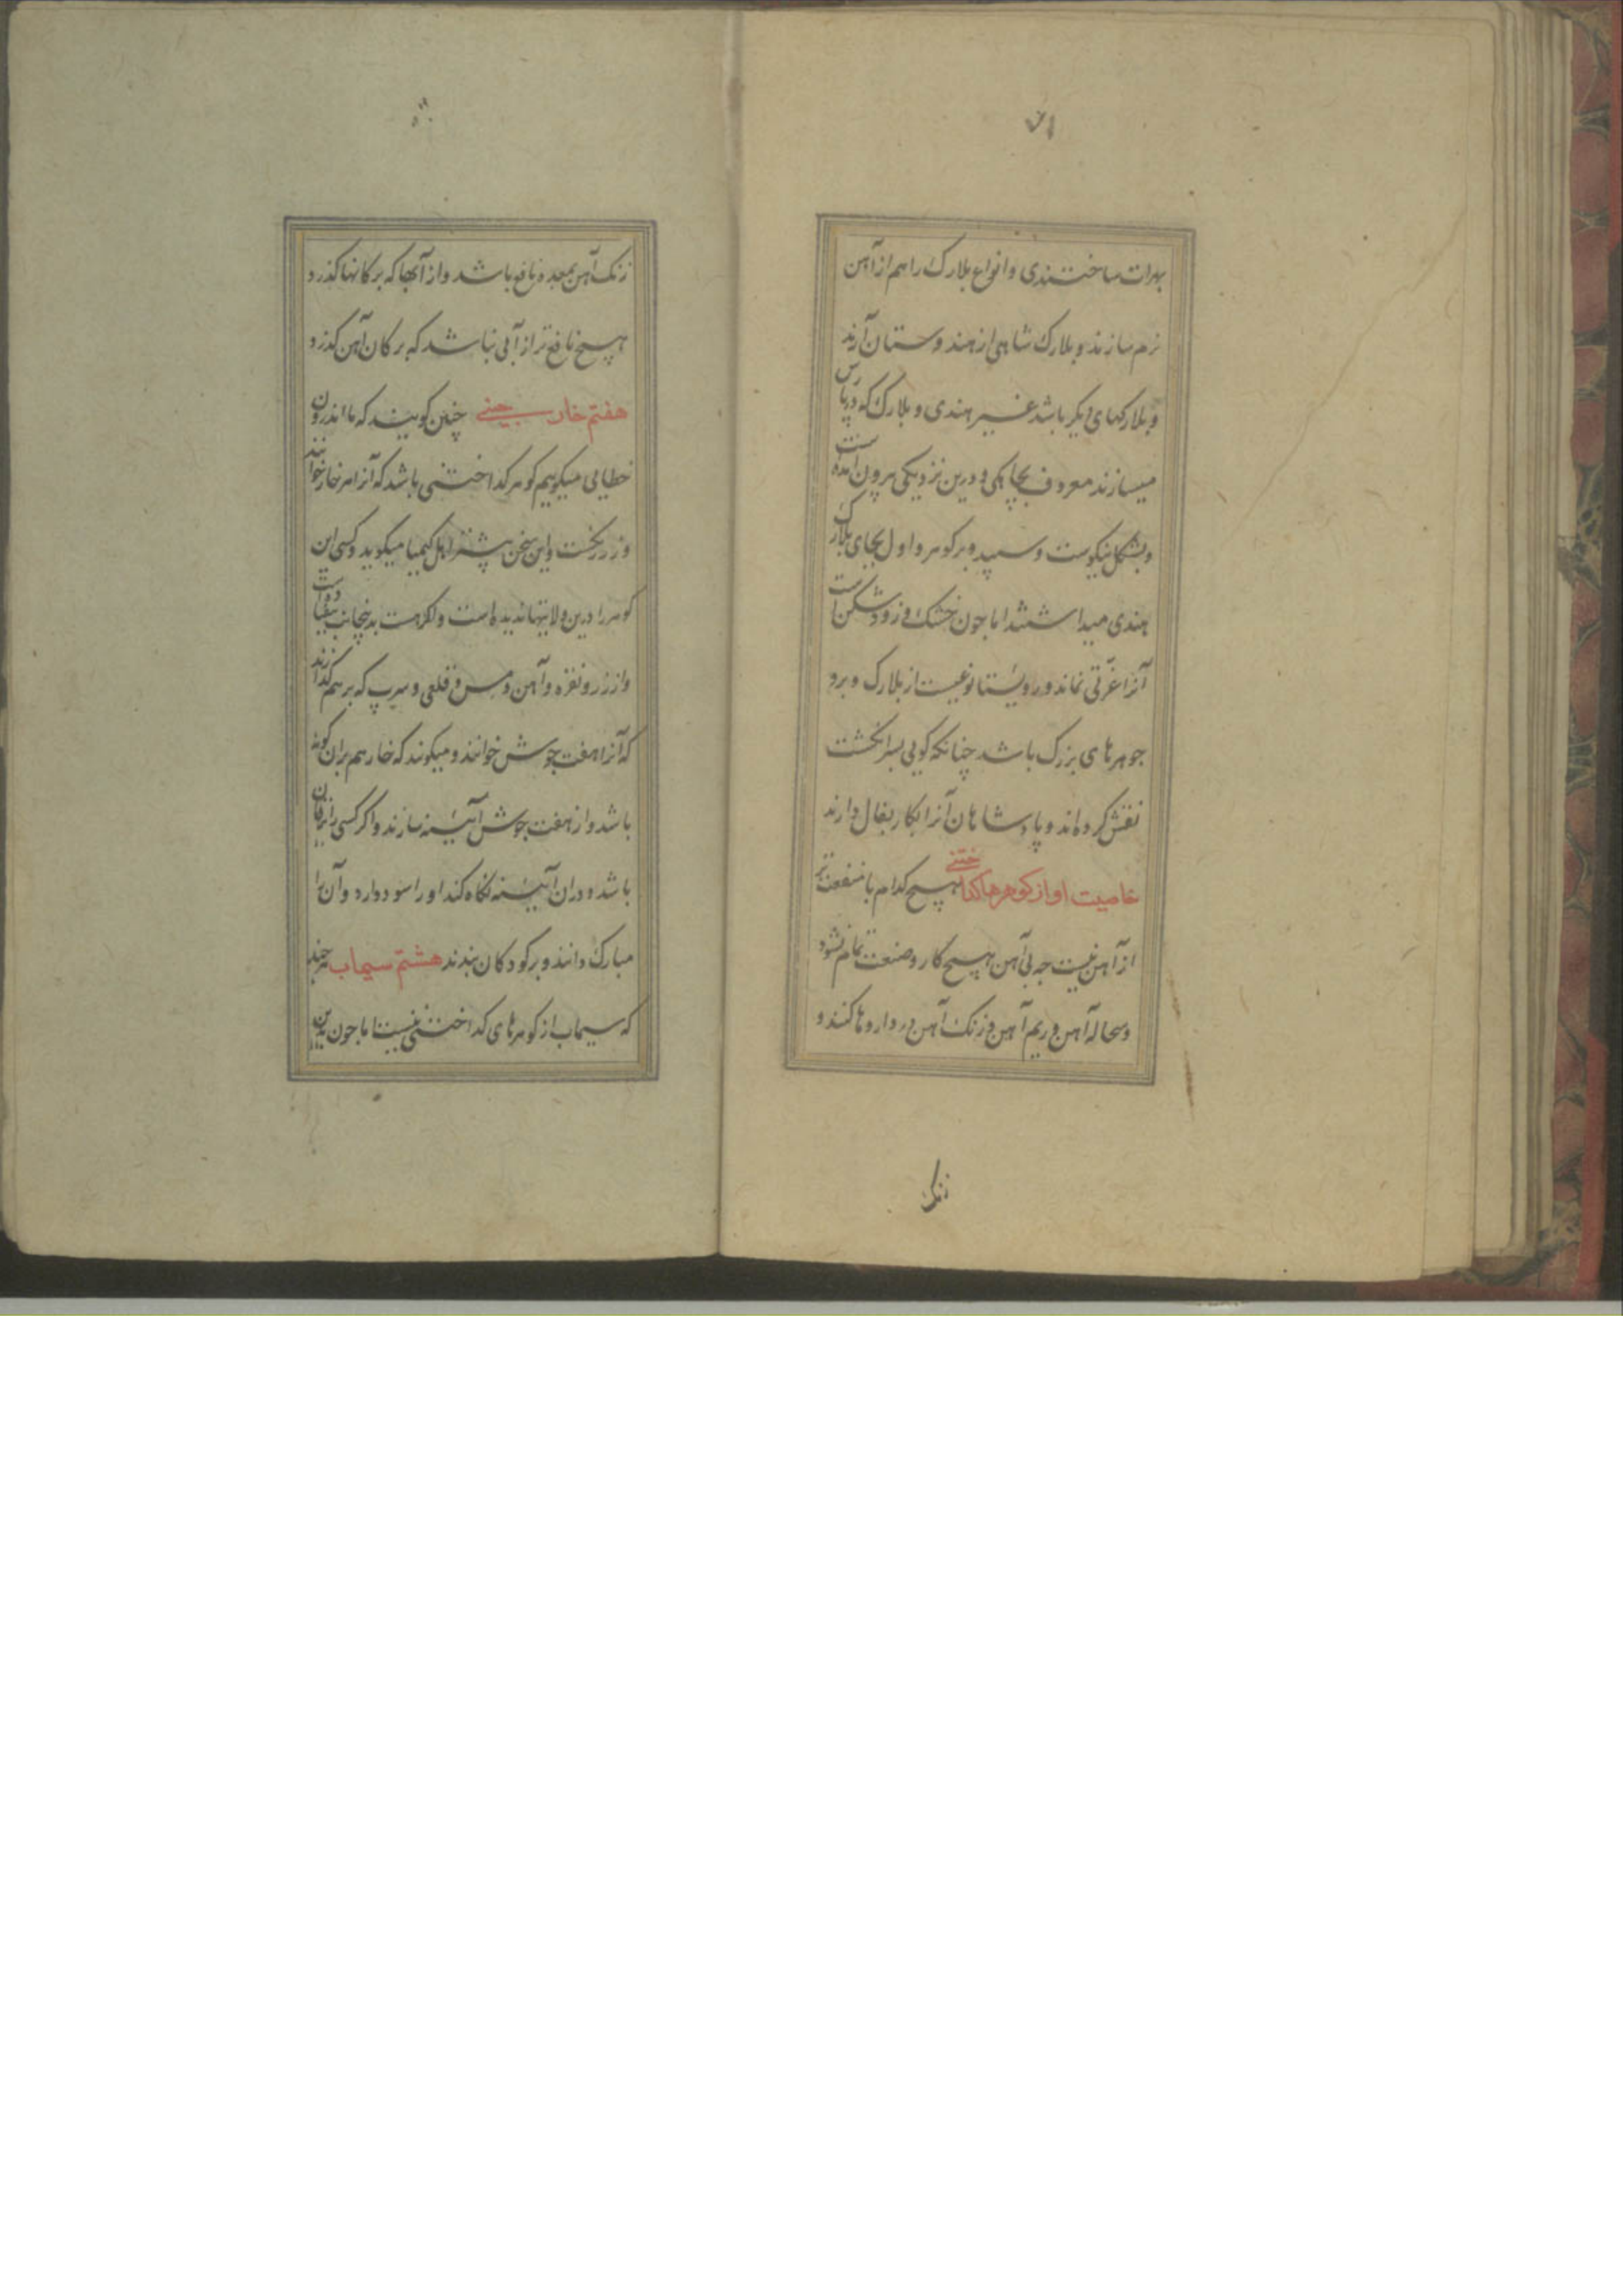 ۷۱
بهرات ساختندی و انواع بلارک را هم از آهن
نرم سازند و بلارک شاهی از هندوستان آرند
و بلارکهای دیگر باشد غیر هندی و بلارک که در پارس
میسازند معروف بچاهکی و درین نزدیکی بیرون آمده است
و بشکل نیکوست و سپید و بر کوهر و اول بجای بلارک
هندی میداشتند اما جون خشک و زودشکن است
آنرا عزتی نماند و روستا نوعیست از بلارک و برو
جوهرهای بزرک باشد چنانکه کویی بسر انکشت
نقش کرده‌اند و پادشاهان آنرا بکار بفال دارند
خاصیت او از کوهرها کداختنی هیچ کدام با منفعت‌تر
از آهن نیست جه بی آهن هیچ کار و صنعت تمام نشود
و سحاله آهن و ریم آهن و زنک آهن در داروها کنند و
زنک
زنک آهن بمعده نافع باشد و از آبها که بر کانها کذرد
هیچ نافع‌تر از آبی نباشد که بر کان آهن کذرد
هفتم خار جینی چنین کویند که ما اندرون
خطایی میکوییم کوهر کداختنی باشد که آنرا هر خار خوانند
و زر پخت و این سخن بیشتر اهل کیمیا میکوید و کسی این
کوهر را درین ولایتها ندیده است و اکر هست بدنجانب
و از زر و نقره و آهن و مس و قلعی و سرب که بر هم کدازند
که آنرا هفت جوش خوانند و میکوند که خار هم بران کونه
باشد و از هفت جوش آیینه سازند و اکر کسی را یرقان
باشد و در ان آیینه نکاه کند او را سود دارد و آن را
مبارک دانند و بر کودکان بندند هشتم سیماب هر چند
که سیماب از کوهرهای کداختنی نیست اما جون بدین